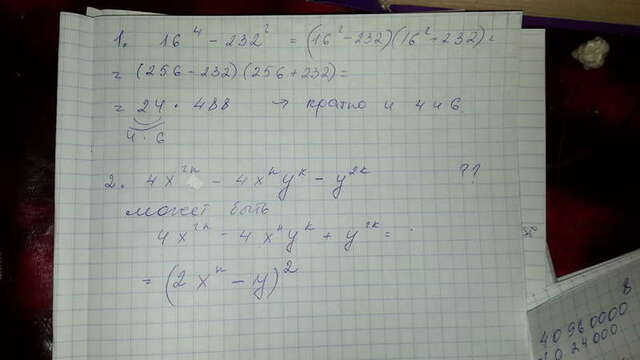 1. 16⁴ - 232² = (16² - 232)(16² + 232) =
= (256 - 232)(256 + 232) =
= 24 · 488 → кратно и 4 и 6
4 · 6
2. 4x²ⁿ - 4xⁿyᵏ - y²ᵏ ??
может быть
4x²ⁿ - 4xⁿyᵏ + y²ᵏ =
= (2xⁿ - y)²
40960000
1024000